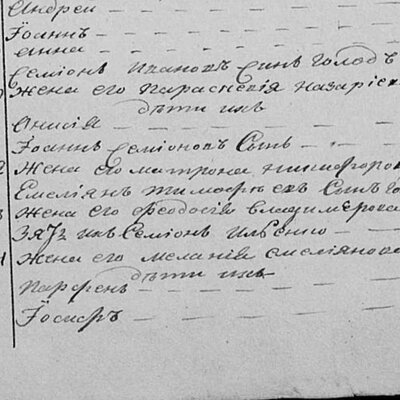 Андреи
Їоаннъ
Анна
Семіонъ Ивановъ синъ Голодъ
Жена его Параскевія Назаріе
дѣти ихъ
Онисія
Їоаннъ Семіоновъ Сынъ
Жена его матрона никифоров
Емеліянъ тимофѣевъ Сынъ го
Жена его Феодосія владимѣрова
Зять ихъ Семіонъ Ильенко
Жена его меланія емеліянова
дѣти ихъ
Парфенъ
Їосифъ